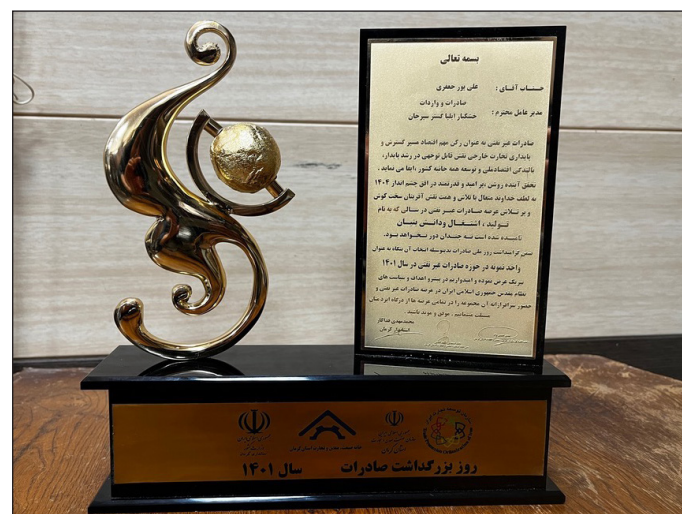 بسمه تعالی
جناب آقای : علی پور جعفری
صادرات و واردات
مدیر عامل محترم : خشکبار ایلیا گستر سیرجان
صادرات غیر نفتی به عنوان رکن مهم اقتصاد مسیر گسترش و
پایداری تجارت خارجی نقش قابل توجهی در رشد پایدار،
بالندگی اقتصادملی و توسعه همه جانبه کشور ایفا می نماید .
تحقق آینده روشن ،پر امید و قدرتمند در افق چشم انداز ۱۴۰۴
به لطف خداوند متعال با تلاش و همت نقش آفرینان سخت کوش
و پر تلاش عرصه صادرات غیر نفتی در سالی که به نام
تولید ، اشتغال ودانش بنیان
نامیده شده است نه چندان دور نخواهد بود.
ضمن گرامیداشت روز ملی صادرات بدینوسیله انتخاب آن بنگاه به عنوان
واحد نمونه در حوزه صادرات غیر نفتی در سال ۱۴۰۱
تبریک عرض نموده و امیدواریم در پیشبرد اهداف و سیاست های
نظام مقدس جمهوری اسلامی ایران در عرصه صادرات غیر نفتی و
حضور سرافرازانه آن مجموعه را در تمامی عرصه ها از درگاه ایزد منان
مسئلت مینماییم . موفق و موید باشید
محمدمهدی فداکار
استاندار کرمان
خانه صنعت، معدن و تجارت استان کرمان
روز بزرگداشت صادرات سال ۱۴۰۱